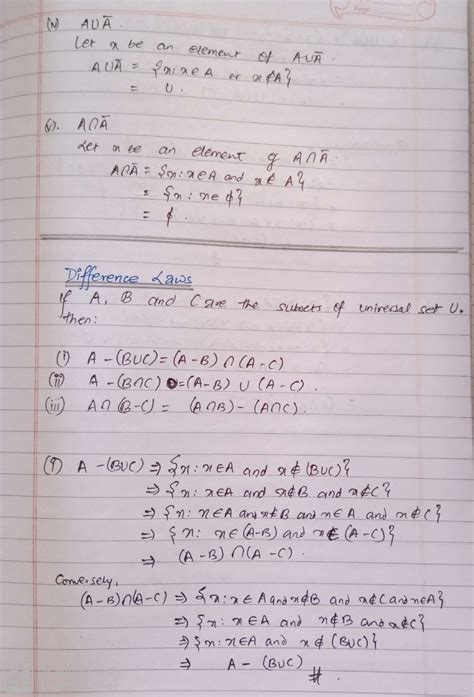 (iv) A∪Ā.
Let x be an element of A∪Ā.
A∪Ā = {x: x∈A or x∉A}
= U.
(v). A∩Ā
Let x be an element of A∩Ā.
A∩Ā = {x: x∈A and x∉A}
= {x: x∈ϕ}
= ϕ.
Difference Laws
If A, B and C are the subsets of universal set U.
then:
(i) A-(B∪C)=(A-B)∩(A-C)
(ii) A-(B∩C)=(A-B)∪(A-C).
(iii) A∩(B-C)=(A∩B)-(A∩C).
(i) A-(B∪C) ⇒ {x: x∈A and x∉(B∪C)}
⇒ {x: x∈A and x∉B and x∉C}
⇒ {x: x∈A and x∉B and x∈A and x∉C}
⇒ {x: x∈(A-B) and x∈(A-C)}
⇒ (A-B)∩(A-C).
Conversely,
(A-B)∩(A-C) ⇒ {x: x∈A and x∉B and x∉C and x∈A}
⇒ {x: x∈A and x∉B and x∉C}
⇒ {x: x∈A and x∉(B∪C)}
⇒ A-(B∪C) #.